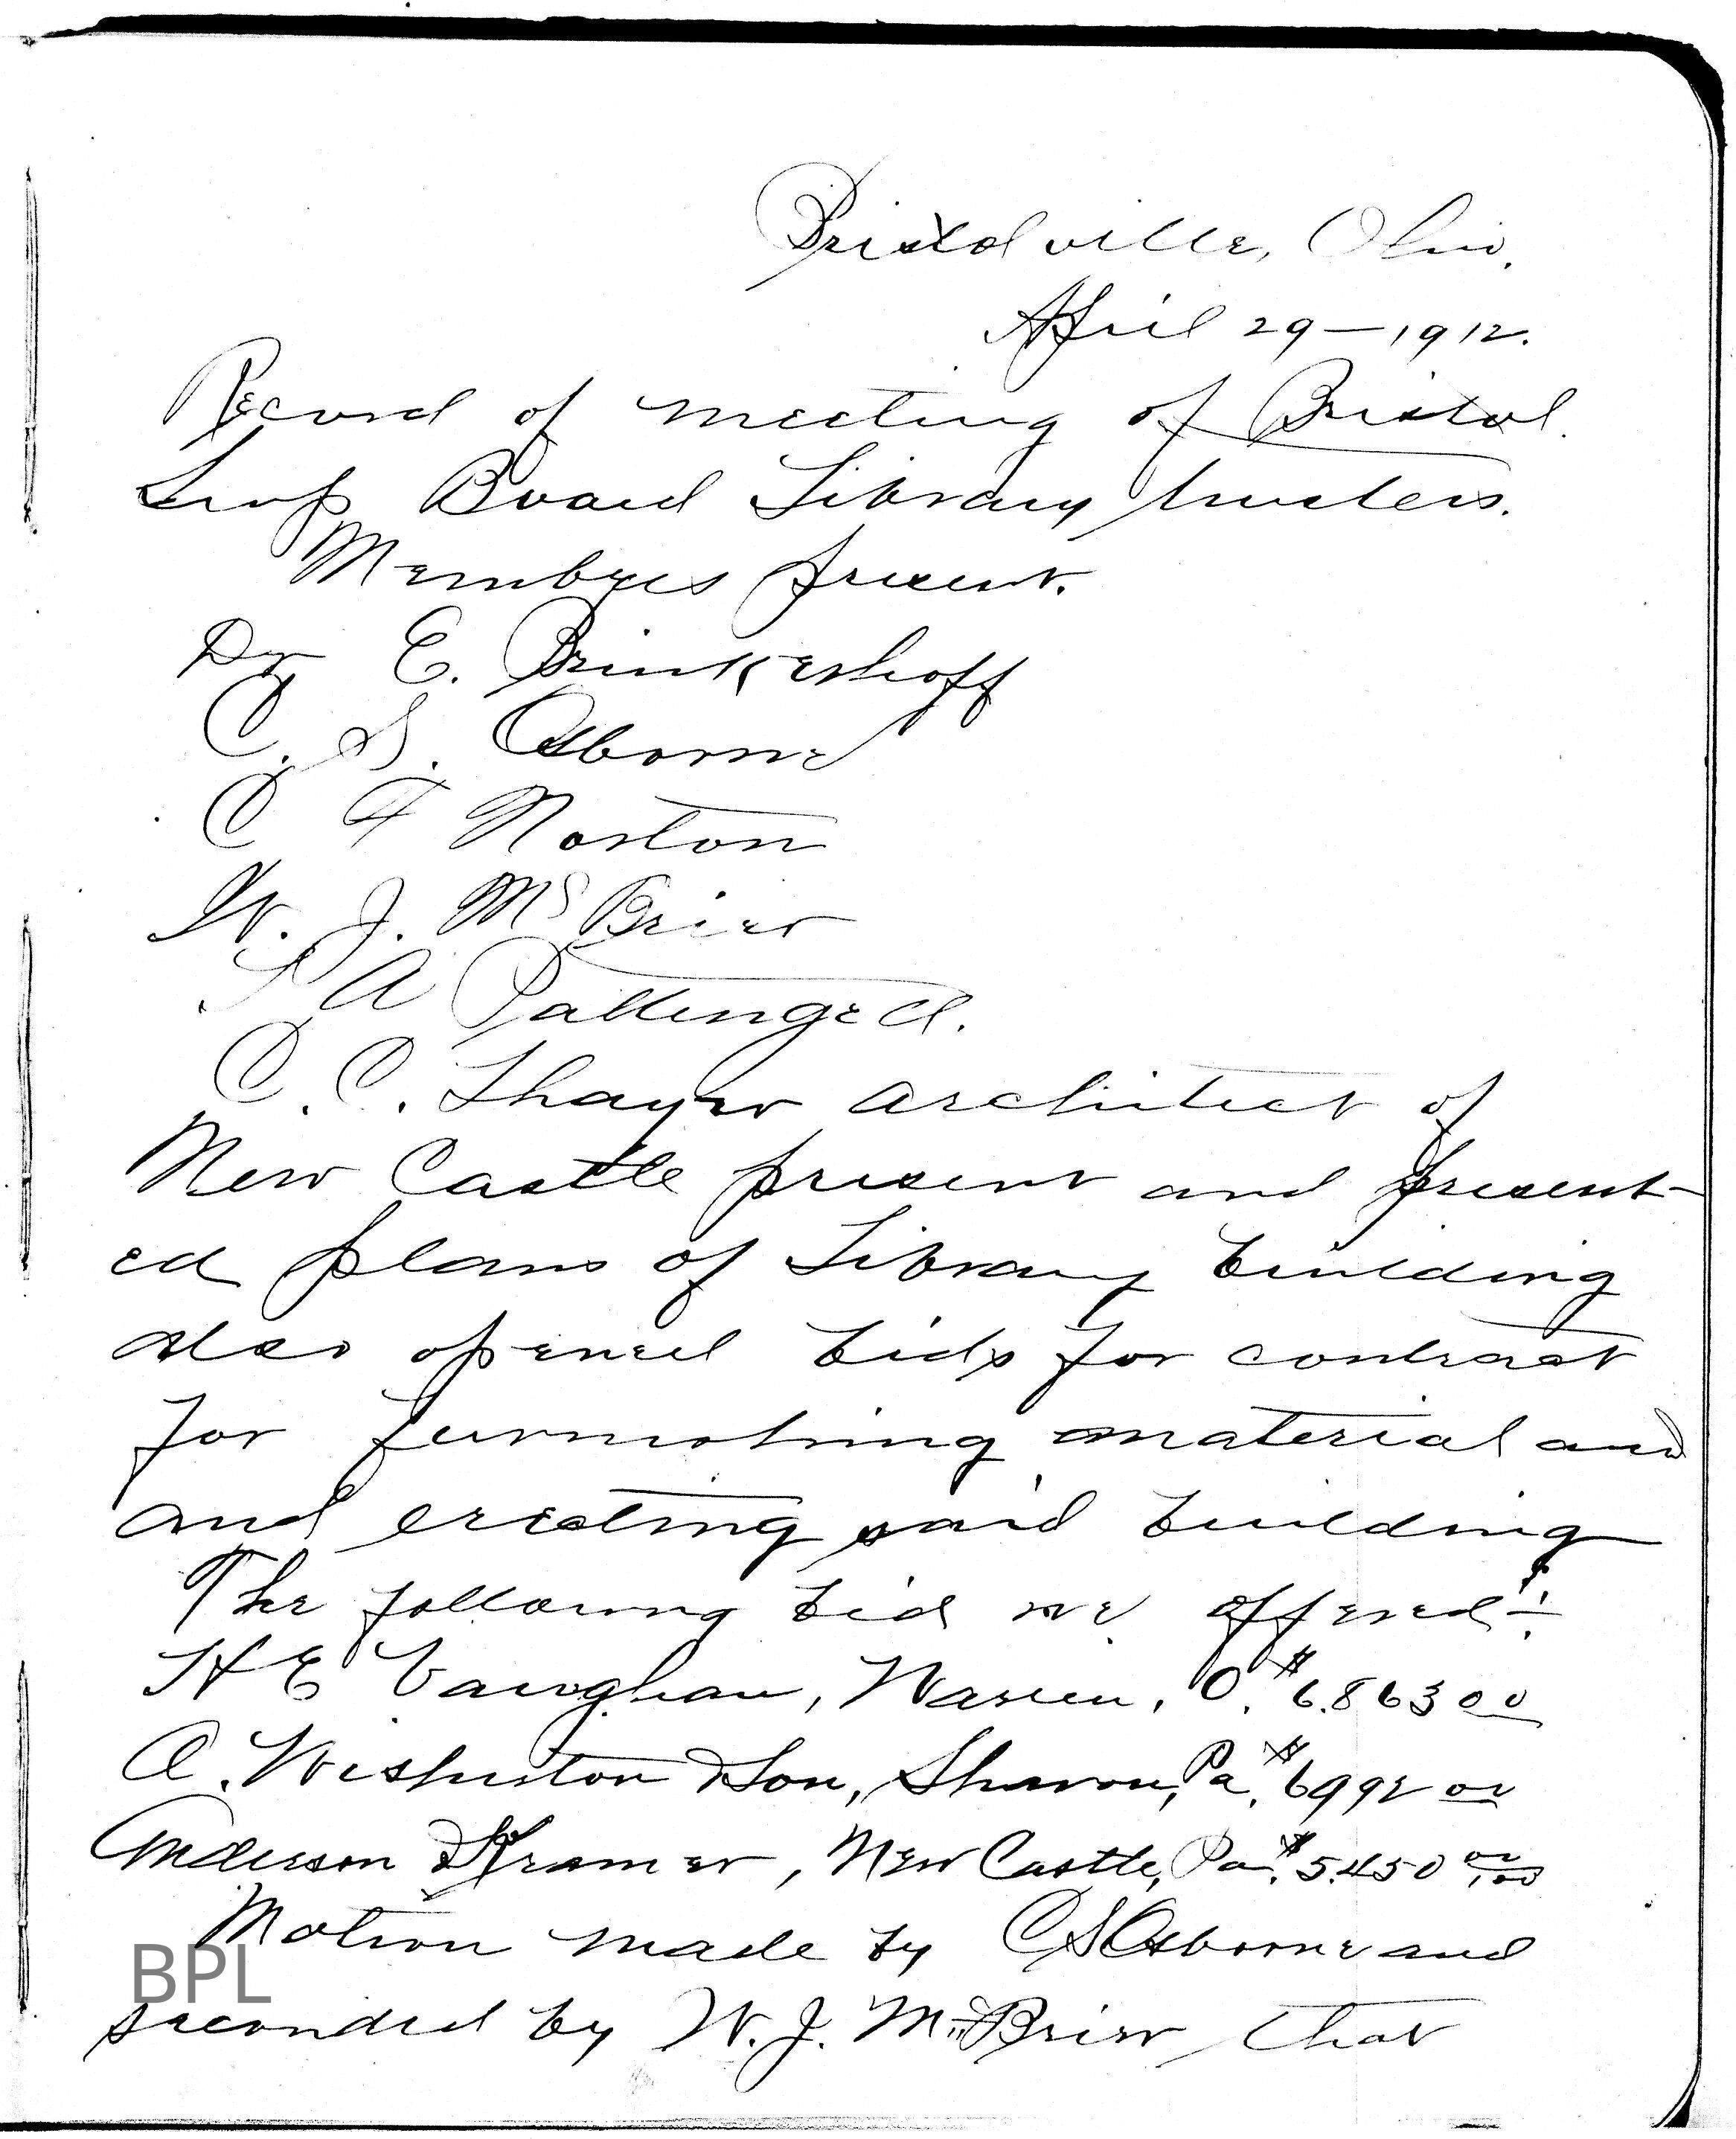 Bristolville, Ohio.
April 29 — 1912.
Record of meeting of Bristol
Twp Board Library trustees.
Members present.
Dr E. Brinkerhoff
C. S. Osborne
C F Norton
W. J. McBrier
A Pattengell.
C. C. Thayer architect of
New Castle present and present-
ed plans of Library building
also opened bids for contract
for furnishing material and
and erecting said building
The following bid were offered:
H E Vaughan, Warren, O. $6.863 00
A. Wishart & Son, Sharon, Pa. $6992 00
Anderson & Kramer, New Castle, Pa. $5.450 00
Motion made by C S Osborne and
seconded by W. J. McBrier that
BPL